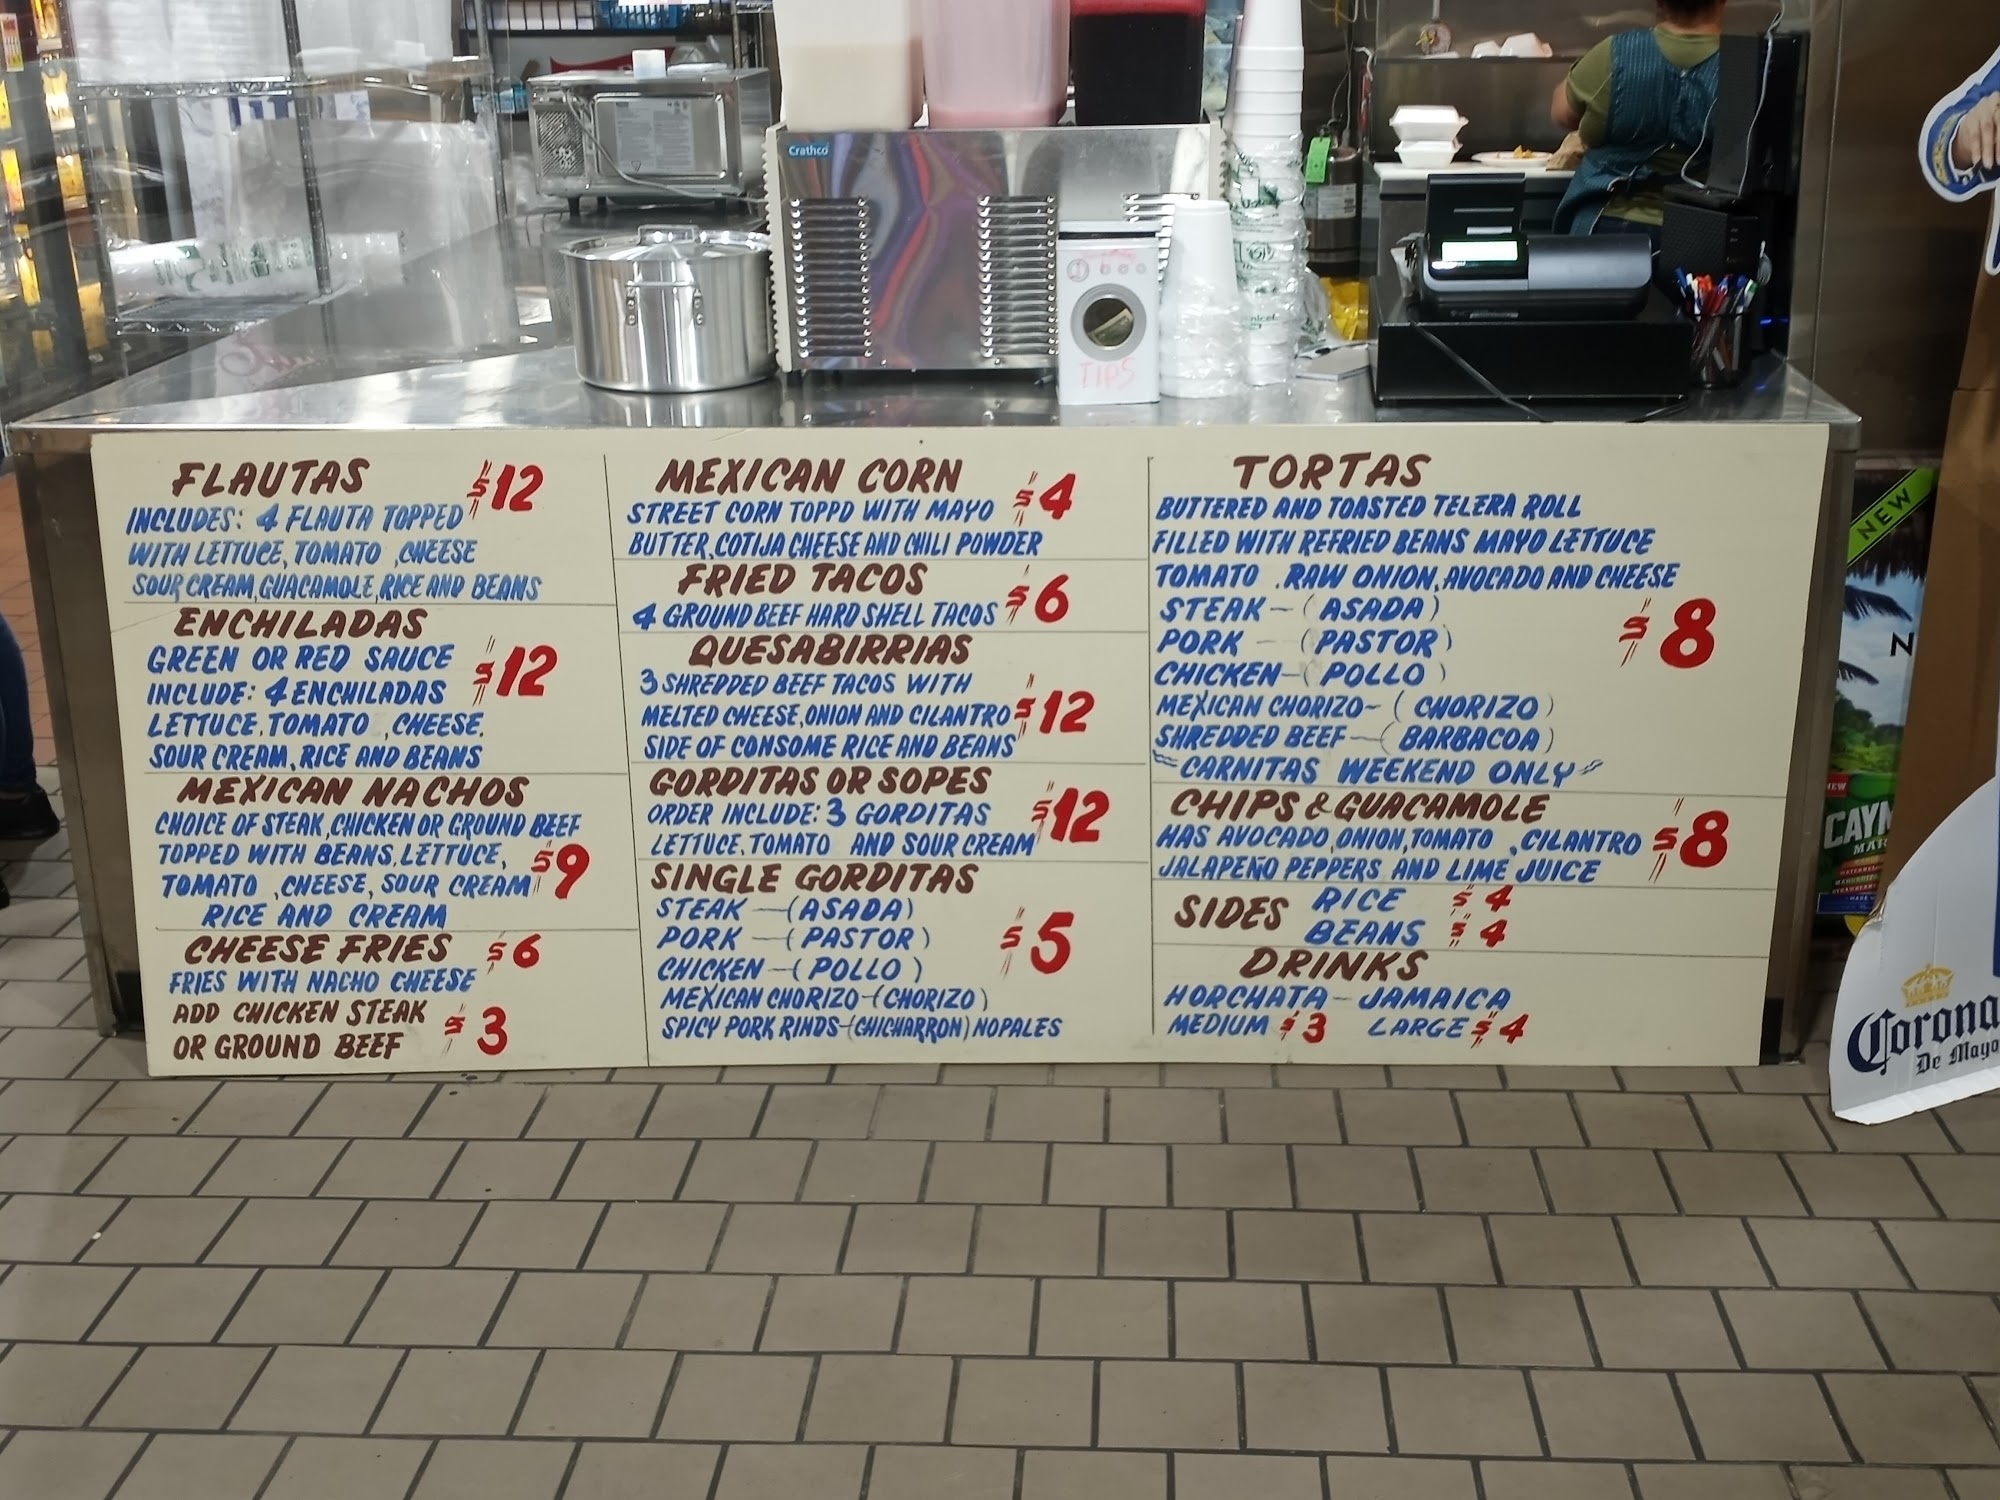 Crathco
TIPS
FLAUTAS
$12
INCLUDES: 4 FLAUTA TOPPED
WITH LETTUCE, TOMATO ,CHEESE
SOUR CREAM, GUACAMOLE, RICE AND BEANS
ENCHILADAS
GREEN OR RED SAUCE
$12
INCLUDE: 4 ENCHILADAS
LETTUCE. TOMATO ,CHEESE.
SOUR CREAM, RICE AND BEANS
MEXICAN NACHOS
CHOICE OF STEAK, CHICKEN OR GROUND BEEF
TOPPED WITH BEANS, LETTUCE,
$9
TOMATO ,CHEESE, SOUR CREAM
RICE AND CREAM
CHEESE FRIES $6
FRIES WITH NACHO CHEESE
ADD CHICKEN STEAK
$3
OR GROUND BEEF
MEXICAN CORN
$4
STREET CORN TOPPD WITH MAYO
BUTTER, COTIJA CHEESE AND CHILI POWDER
FRIED TACOS
$6
4 GROUND BEEF HARD SHELL TACOS
QUESABIRRIAS
3 SHREDDED BEEF TACOS WITH
MELTED CHEESE, ONION AND CILANTRO $12
SIDE OF CONSOME RICE AND BEANS
GORDITAS OR SOPES
ORDER INCLUDE: 3 GORDITAS $12
LETTUCE, TOMATO AND SOUR CREAM
SINGLE GORDITAS
STEAK - (ASADA)
PORK - (PASTOR) $5
CHICKEN - (POLLO)
MEXICAN CHORIZO - (CHORIZO)
SPICY PORK RINDS - (CHICHARRON) NOPALES
TORTAS
BUTTERED AND TOASTED TELERA ROLL
FILLED WITH REFRIED BEANS MAYO LETTUCE
TOMATO . RAW ONION, AVOCADO AND CHEESE
STEAK - (ASADA)
$8
PORK - (PASTOR)
CHICKEN - (POLLO)
MEXICAN CHORIZO - (CHORIZO)
SHREDDED BEEF - (BARBACOA)
CARNITAS WEEKEND ONLY
CHIPS & GUACAMOLE
HAS AVOCADO, ONION, TOMATO , CILANTRO $8
JALAPEÑO PEPPERS AND LIME JUICE
SIDES RICE $4
BEANS $4
DRINKS
HORCHATA - JAMAICA
MEDIUM $3 LARGE $4
NEW
NEW
Corona
De Mayo